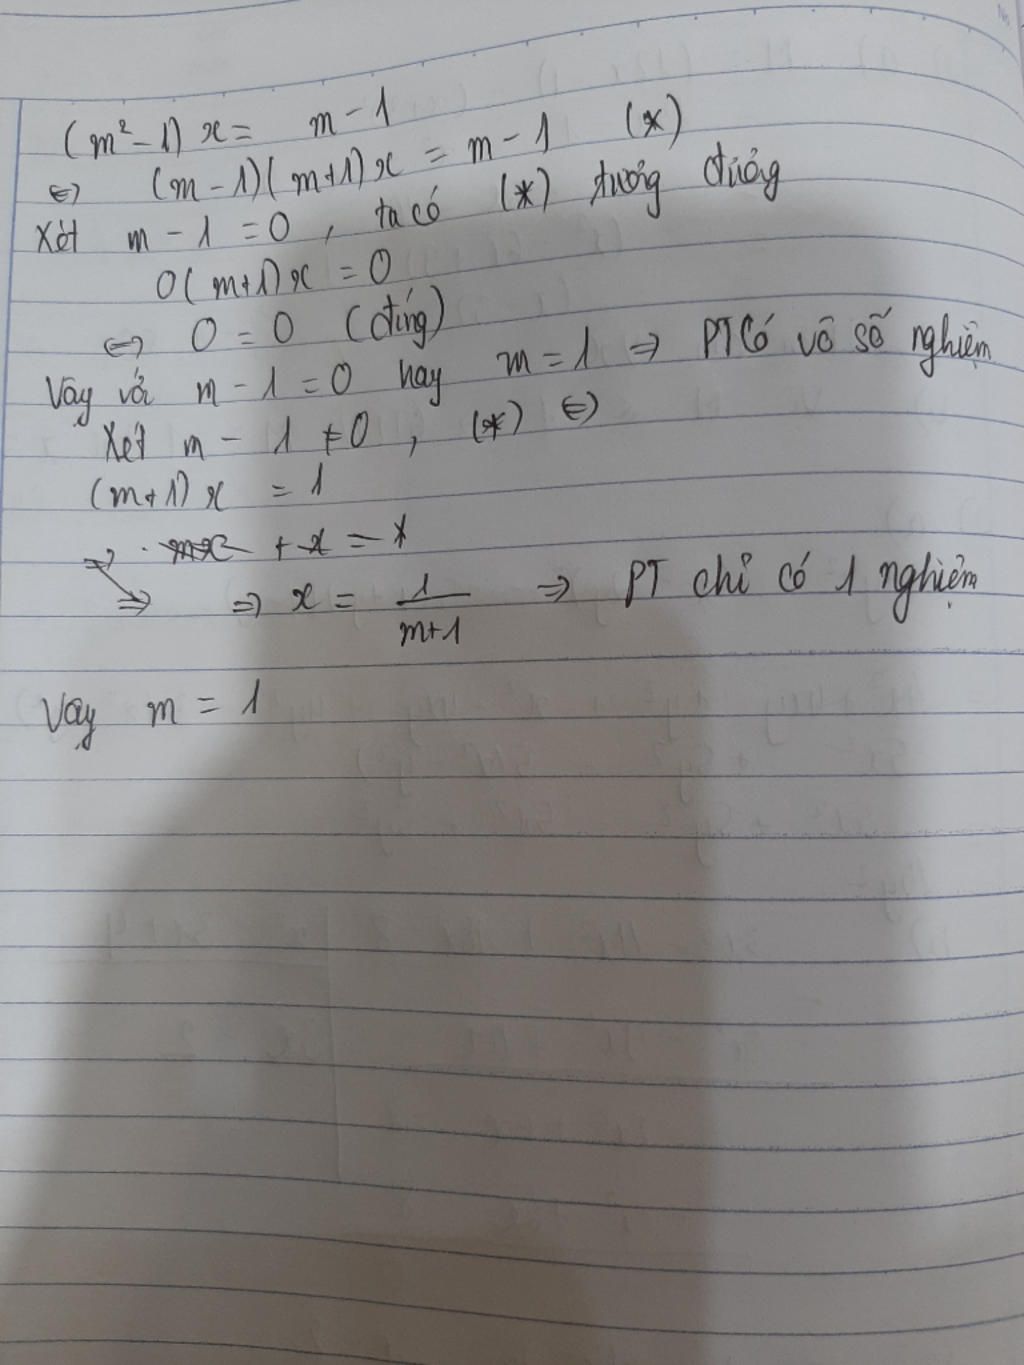 (m²-1)x = m-1
⇔ (m-1)(m+1)x = m-1 (*)
Xét m-1=0, ta có (*) tương đương
0(m+1)x = 0
⇔ 0 = 0 (đúng)
Vậy với m-1=0 hay m=1 ⇒ PT Có vô số nghiệm
Xét m-1≠0, (*) ⇔
(m+1)x = 1
⇒ mx + x = 1
⇒ ⇒ x = 1/(m+1) ⇒ PT chỉ có 1 nghiệm
Vậy m = 1